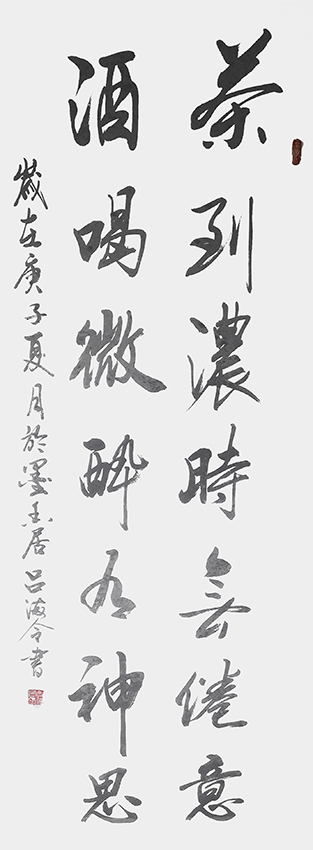 茶到濃時無倦意
酒喝微醉有神思
歲在庚子夏月於墨香居呂海令書